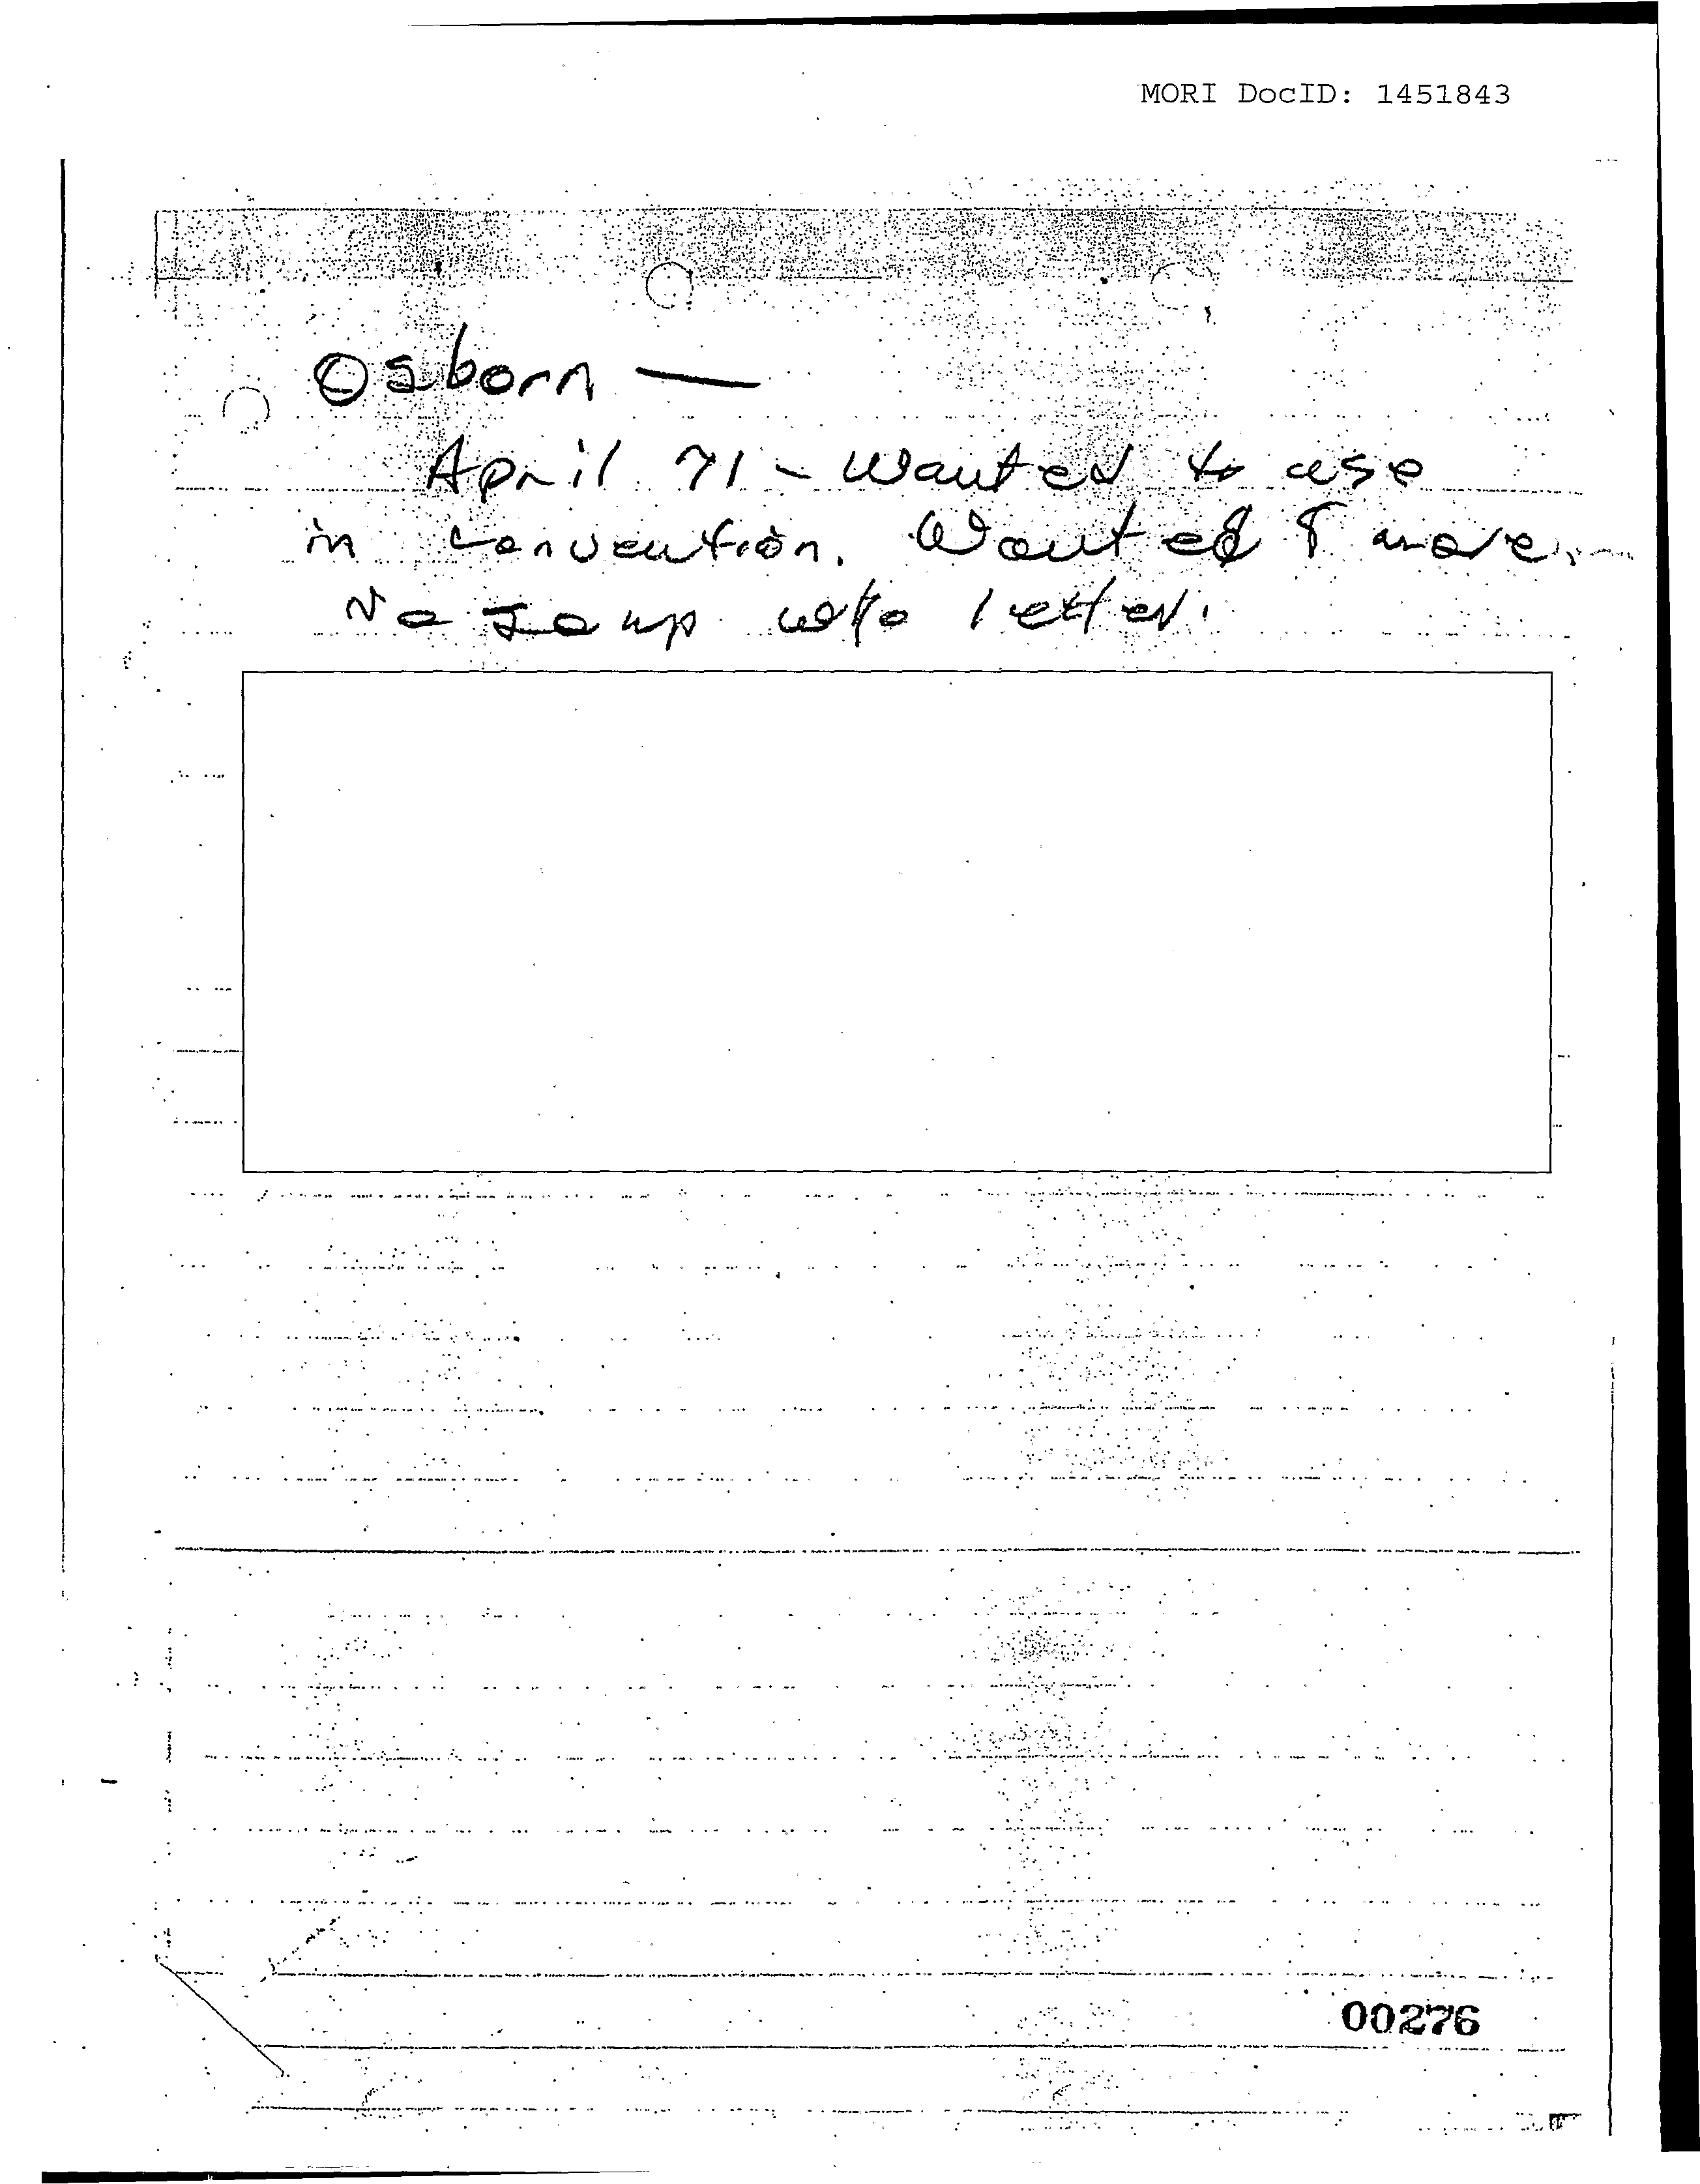 MORI DocID: 1451843
Osborn —
April 71 - Wanted to use
in convention. Wanted 5 more.
No up w/o letter.
00276